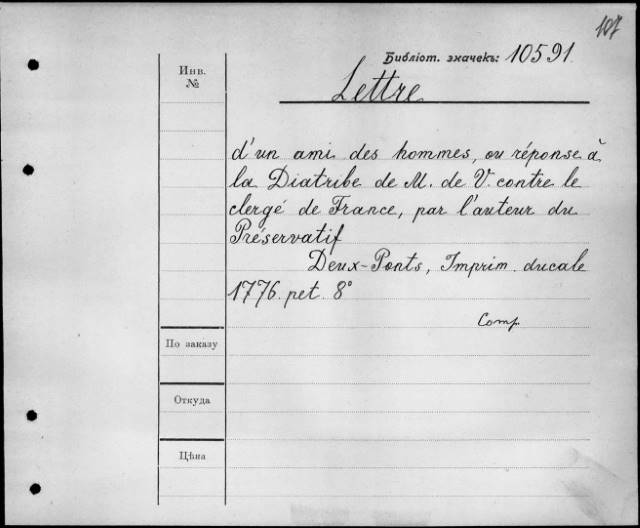 107
Библіот. значекъ: 10591
Инв.
№
Lettre
d'un ami des hommes, ou réponse à
la Diatribe de M. de V. contre le
clergé de France, par l'auteur du
Préservatif
Deux-Ponts, Imprim. ducale
1776. pet. 8°
Comp.
По заказу
Откуда
Цѣна